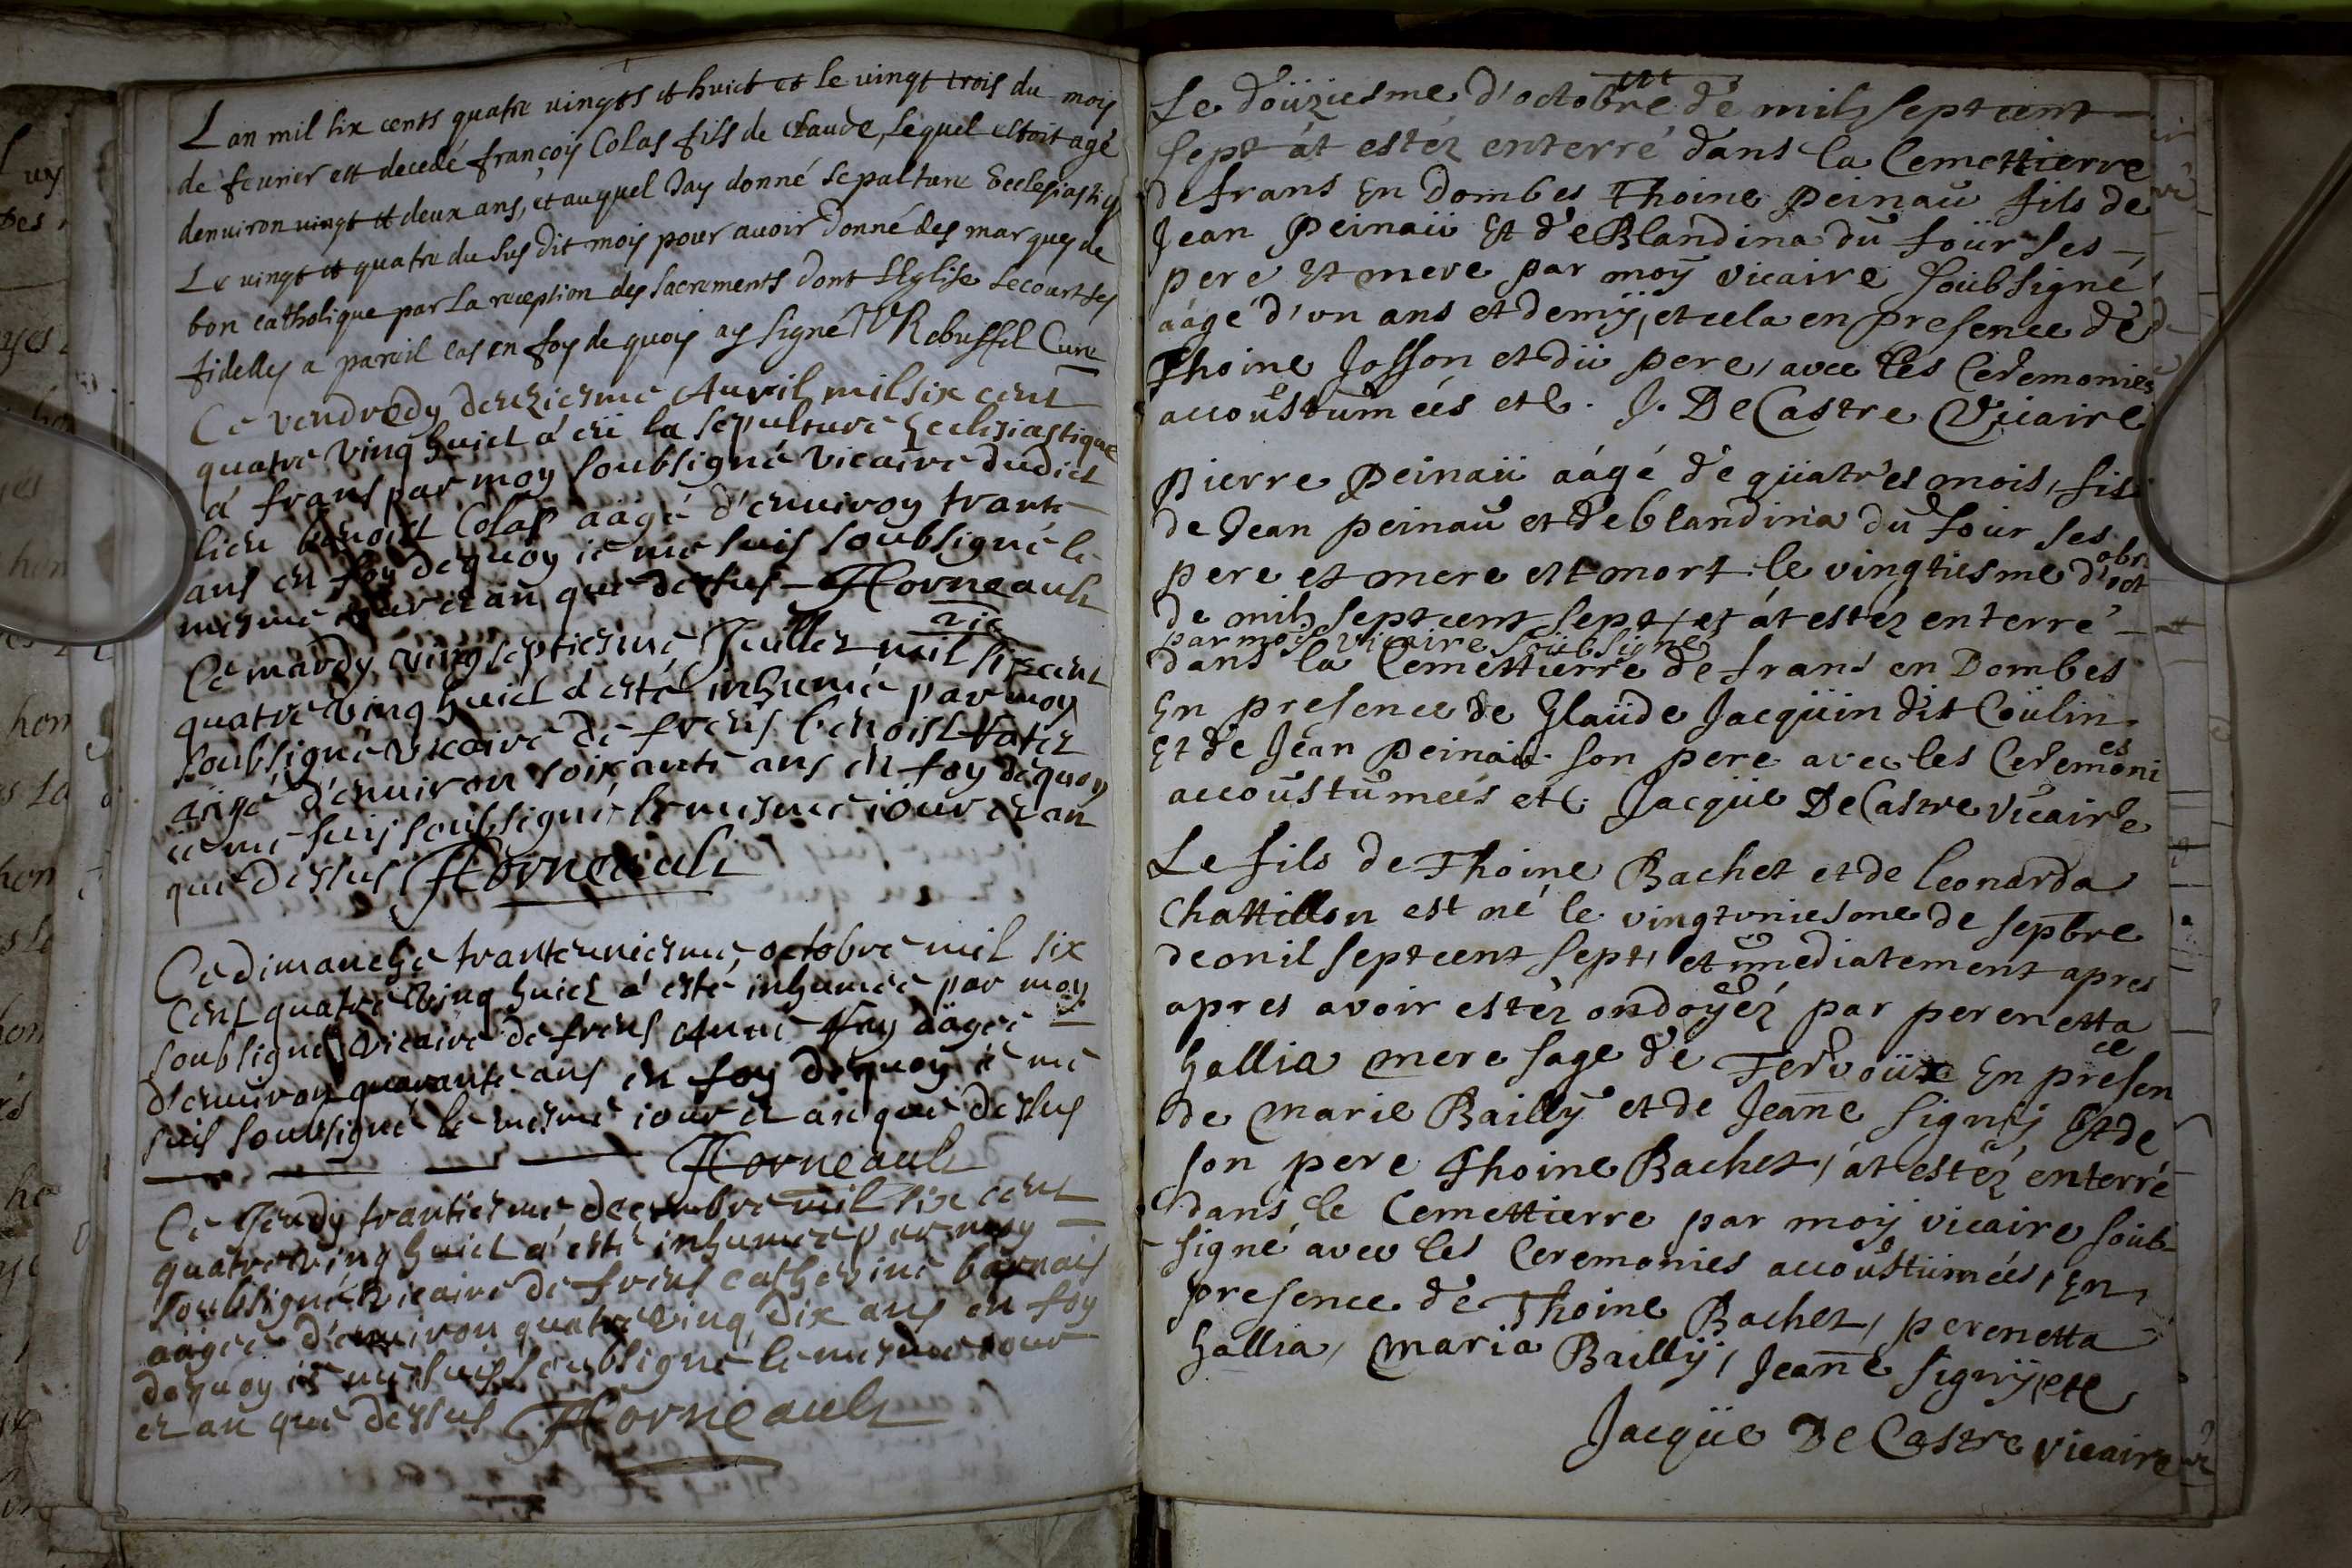 Lan mil six cents quatre vingts et huict et le vingt trois du mois
de feurier est decedé françois Colas fils de Claude, lequel estoit agé
denuiron vingt et deux ans, et auquel Jay donné sepulture Ecclesiastiq
Le vingt et quatre du sus dit mois pour auoir donné des marques de
bon catholique par la reception des sacrements dont l'Eglise secourt ses
fidelles a pareil cas en foy de quoy ay signé Rebuffel Curé
Ce vendredy deuziesme Auvril mil six cent
quatre ving huict á eü la sepulture Ecclesiastique
á frans par moy soubsigné vicaire dudict
lieu benoist Colas aagé d'enuiron trante
ans en foy dequoy ie me suis soubsigné le
mesme iour et an que dessus Horneault
vic
Ce mardy ving septiesme Juillet mil six cent
quatre ving huict á esté inhumé par moy
soubsigné vicaire de frens benoist
aagé d'enuiron soixante ans en foy dequoy
ie me suis soubsigné le mesme iour et an
que dessus Horneault
Ce dimanche trante uniesme octobre mil six
Cent quatre ving huict á esté inhumée par moy
soubsigné vicaire de frens aagée
d'enuiron quarante ans en foy dequoy ie me
suis soubsigné le mesme iour et an que dessus
Horneault
Ce Jeudy trantiesme decembre mil six cent
quatre ving huict á esté inhumée par moy
soubsigné vicaire de frens catherine barnais
aagée d'enuiron quatre ving dix ans en foy
dequoy ie me suis soubsigné le mesme iour
et an que dessus Horneault
Le doüziesme d'octobre de mil sept cent
sept át estéz enterré dans la Cemettierre
de frans En Dombes Thoine peinaü fils de
Jean Peinaü Et de Blandina du foür ses
pere Et mere par moÿ vicaire soubsigné
aágé d'un ans et demÿ, et cela en presence de
Thoine Josson et dü pere, avec les Ceremonies
accoustumeés etc. J. De Castre Vicaire
pierre Peinaü aágé de qüatres mois, fils
de Jean peinaü et de blandina du four ses
pere et mere est mort le vingtiesme d'octobr
de mil sept cent sept, et át estéz enterré
par moÿ vicaire soübsigné
dans la Cemettierre de frans en Dombes
En presence de Glaüde Jacqüin dit Coülin
Et de Jean Peinaü son pere avec les Ceremonies
accoüstumeés etc. Jacqüe De Castre vicaire
Le fils de Thoine Bachet et de Leonarda
Chattillon est né le vingtuniesme de sepbre
de mil sept cent sept, et imediatement apres
apres avoir estéz ondoÿéz par perenetta
Gallia mere sage de En presence
de Marie Baillÿ et de Jeanne Signÿ Et de
son pere Thoine Bachet, át estéz enterré
dans le Cemettierre par moÿ vicaire soub-
signé avec les Ceremonies accoustümeés, En
presence de Thoine Bachet, perenetta
Gallia, Maria Baillÿ, Jeanne Signÿ, etc
Jacqüe De Castre vicaire